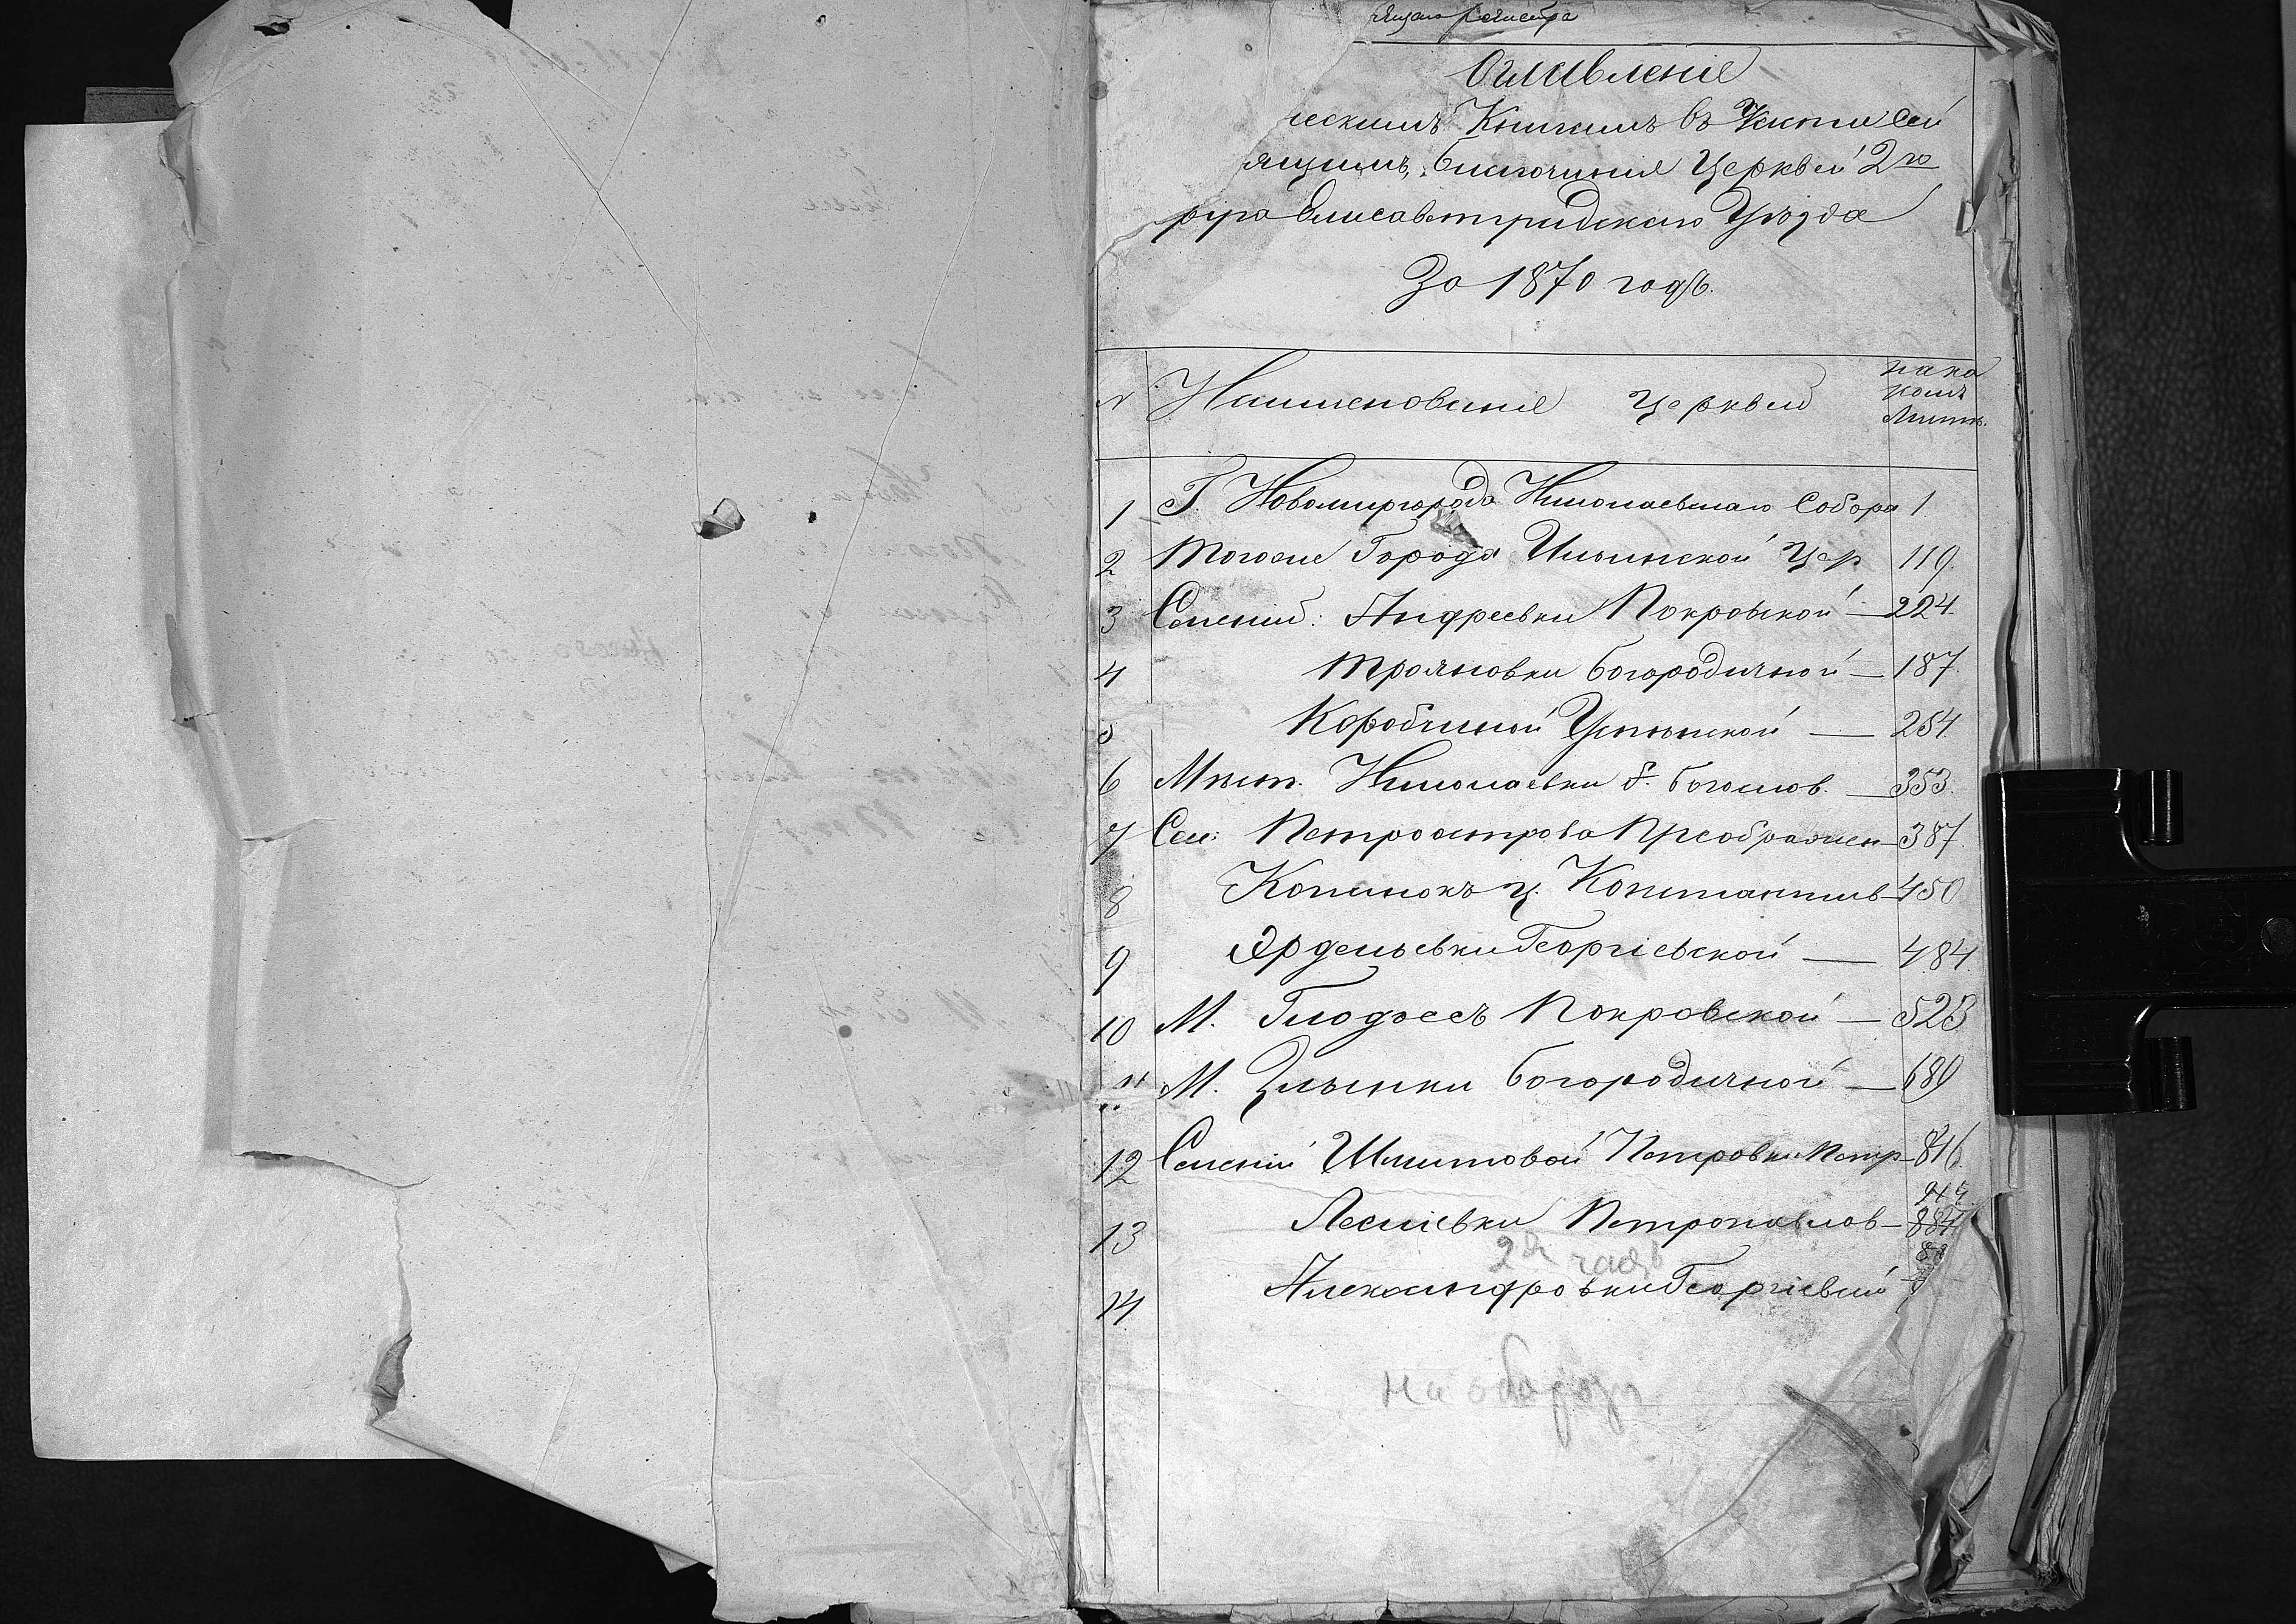 Оглавленіе
ческимъ Книгамъ въ Части сей
ящимъ, благочинія Церквей 2го
руга Елисаветградскаго Уѣзда
За 1870 годъ.
№ Наименованіе церквей на ка комъ Листѣ.
1 Г. Новомиргорода Николаевскаго Собора 1
2 Тогоже Города Ильинской Цер 119.
3 Селеній: Андреевки Покровской — 224.
4 Трояновки Богородичной — 187.
5 Коробчиной Успенской — 254.
6 Мѣст. Николаевки І. Богослов. — 353.
7 Сел: Петроострова Преображен — 387.
8 Копанокъ ц. Константинов — 450.
9 Эрделевки Георгіевской — 484.
10 М. Глодосъ Покровской — 523
11 М. Злынки Богородичной — 689
12 Селеній Шмитовой Петровки Петр — 816.
13 Лесіевки Петропавлов — 884
2я часть
14 Александровки Георгіевской
на оборотѣ